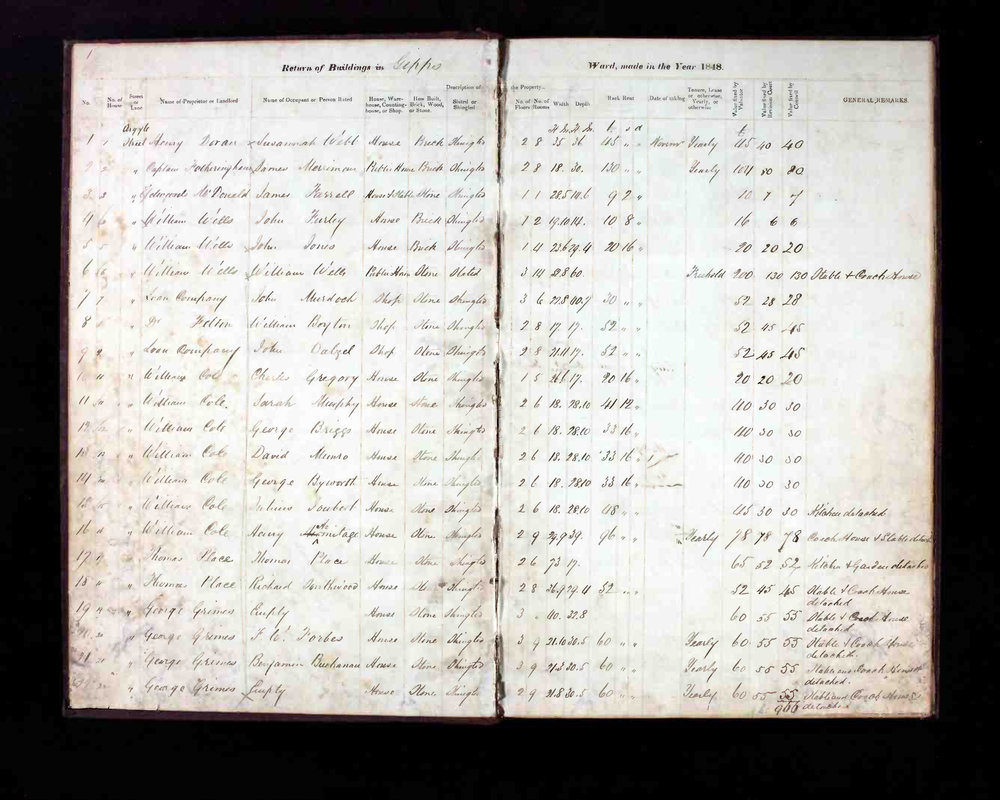 1
Return of Buildings in Gipps Ward, made in the Year 1848.
Description of the Property.
No. No. of House Street or Lane Name of Proprietor or Landlord Name of Occupant or Person Rated House, Ware-house, Counting-house, or Shop. How Built, Brick, Wood, or Stone. Slated or Shingled No. of Floors No. of Rooms Width Depth Rack Rent Date of taking Tenure, Lease or otherwise, Yearly, or otherwise Value fixed by Valuator Value fixed by Revision Court Value fixed by Council GENERAL REMARKS.
Argyle
1 Street Henry Doran Susannah Webb House Brick Shingled 2 8 35 36 45 " " Yearly 45 40 40
2 2 " Captain Fotheringham James Merriman Public House Brick Shingled 2 8 18. 30. 130 " " Yearly 104 80 80
3 3 " McDonald James Farrell House & Stable Stone Shingled 1 1 28.5 14.6 9 2 " 10 7 7
4 " William Wells John Furley House Brick Shingled 1 2 19.10 14. 10 8 " 16 6 6
5 5 " William Wells John Jones House Brick Shingled 1 4 23.6 29.4 20 16 " 20 20 20
6 " William Wells William Wells Public House Stone Slated 3 14 28 60. Freehold 200 130 130 Stable & Coach House
7 7 " Loan Company John Murdoch Shop Stone Shingled 3 6 30 " " 52 28 28
8 " Dr Felton William Boyton Shop Stone Shingled 2 8 17. 17. 52 " " 52 45 45
9 9 " Loan Company John Dalzel Shop Stone Shingled 2 8 21.11 17. 52 " " 52 45 45
10 " William Cole Charles Gregory House Stone Shingled 1 5 26.6 17. 20 16 " 20 20 20
11 " William Cole. Sarah Murphy House Stone Shingled 2 6 18. 28.10 41 12 " 40 30 30
12 " William Cole George Briggs House Stone Shingled 2 6 18. 28.10 33 16 " 40 30 30
13 " William Cole David Munro House Stone Shingled 2 6 18. 28.10 33 16 " 40 30 30
14 " William Cole George Byworth House Stone Shingled 2 6 18. 28.10 33 16 " 40 30 30
15 " William Cole Julius Joubert House Stone Shingled 2 6 18. 28.10 48 " " 45 30 30 Kitchen detached
16 " William Cole Henry Armitage House Stone Shingled 2 9 24.9 39. 96 " " Yearly 78 78 78 Coach House & Stable detached
17 " Thomas Place Thomas Place House Stone Shingled 2 6 73 17. 65 52 52 Kitchen & Garden detached
18 " Thomas Place Richard House Shingled 2 8 36.9 29.4 52 " " 52 45 45 Stable & Coach House
detached
19 " George Grimes Empty House Stone Shingled 3 " 40. 32.8 60 55 55 Stable & Coach House
detached
20 " George Grimes F. W. Forbes House Stone Shingled 3 9 21.10 30.5 60 " " Yearly 60 55 55 Stable & Coach House
detached.
21 " George Grimes Benjamin Buchanan House Stone Shingled 3 9 21.3 30.5 60 " " Yearly 60 55 55 Stable and Coach House
detached.
" George Grimes Empty House Stone Shingled 2 9 21.3 30.5 60 " " Yearly 60 55 55 Stable and Coach House
966 detached